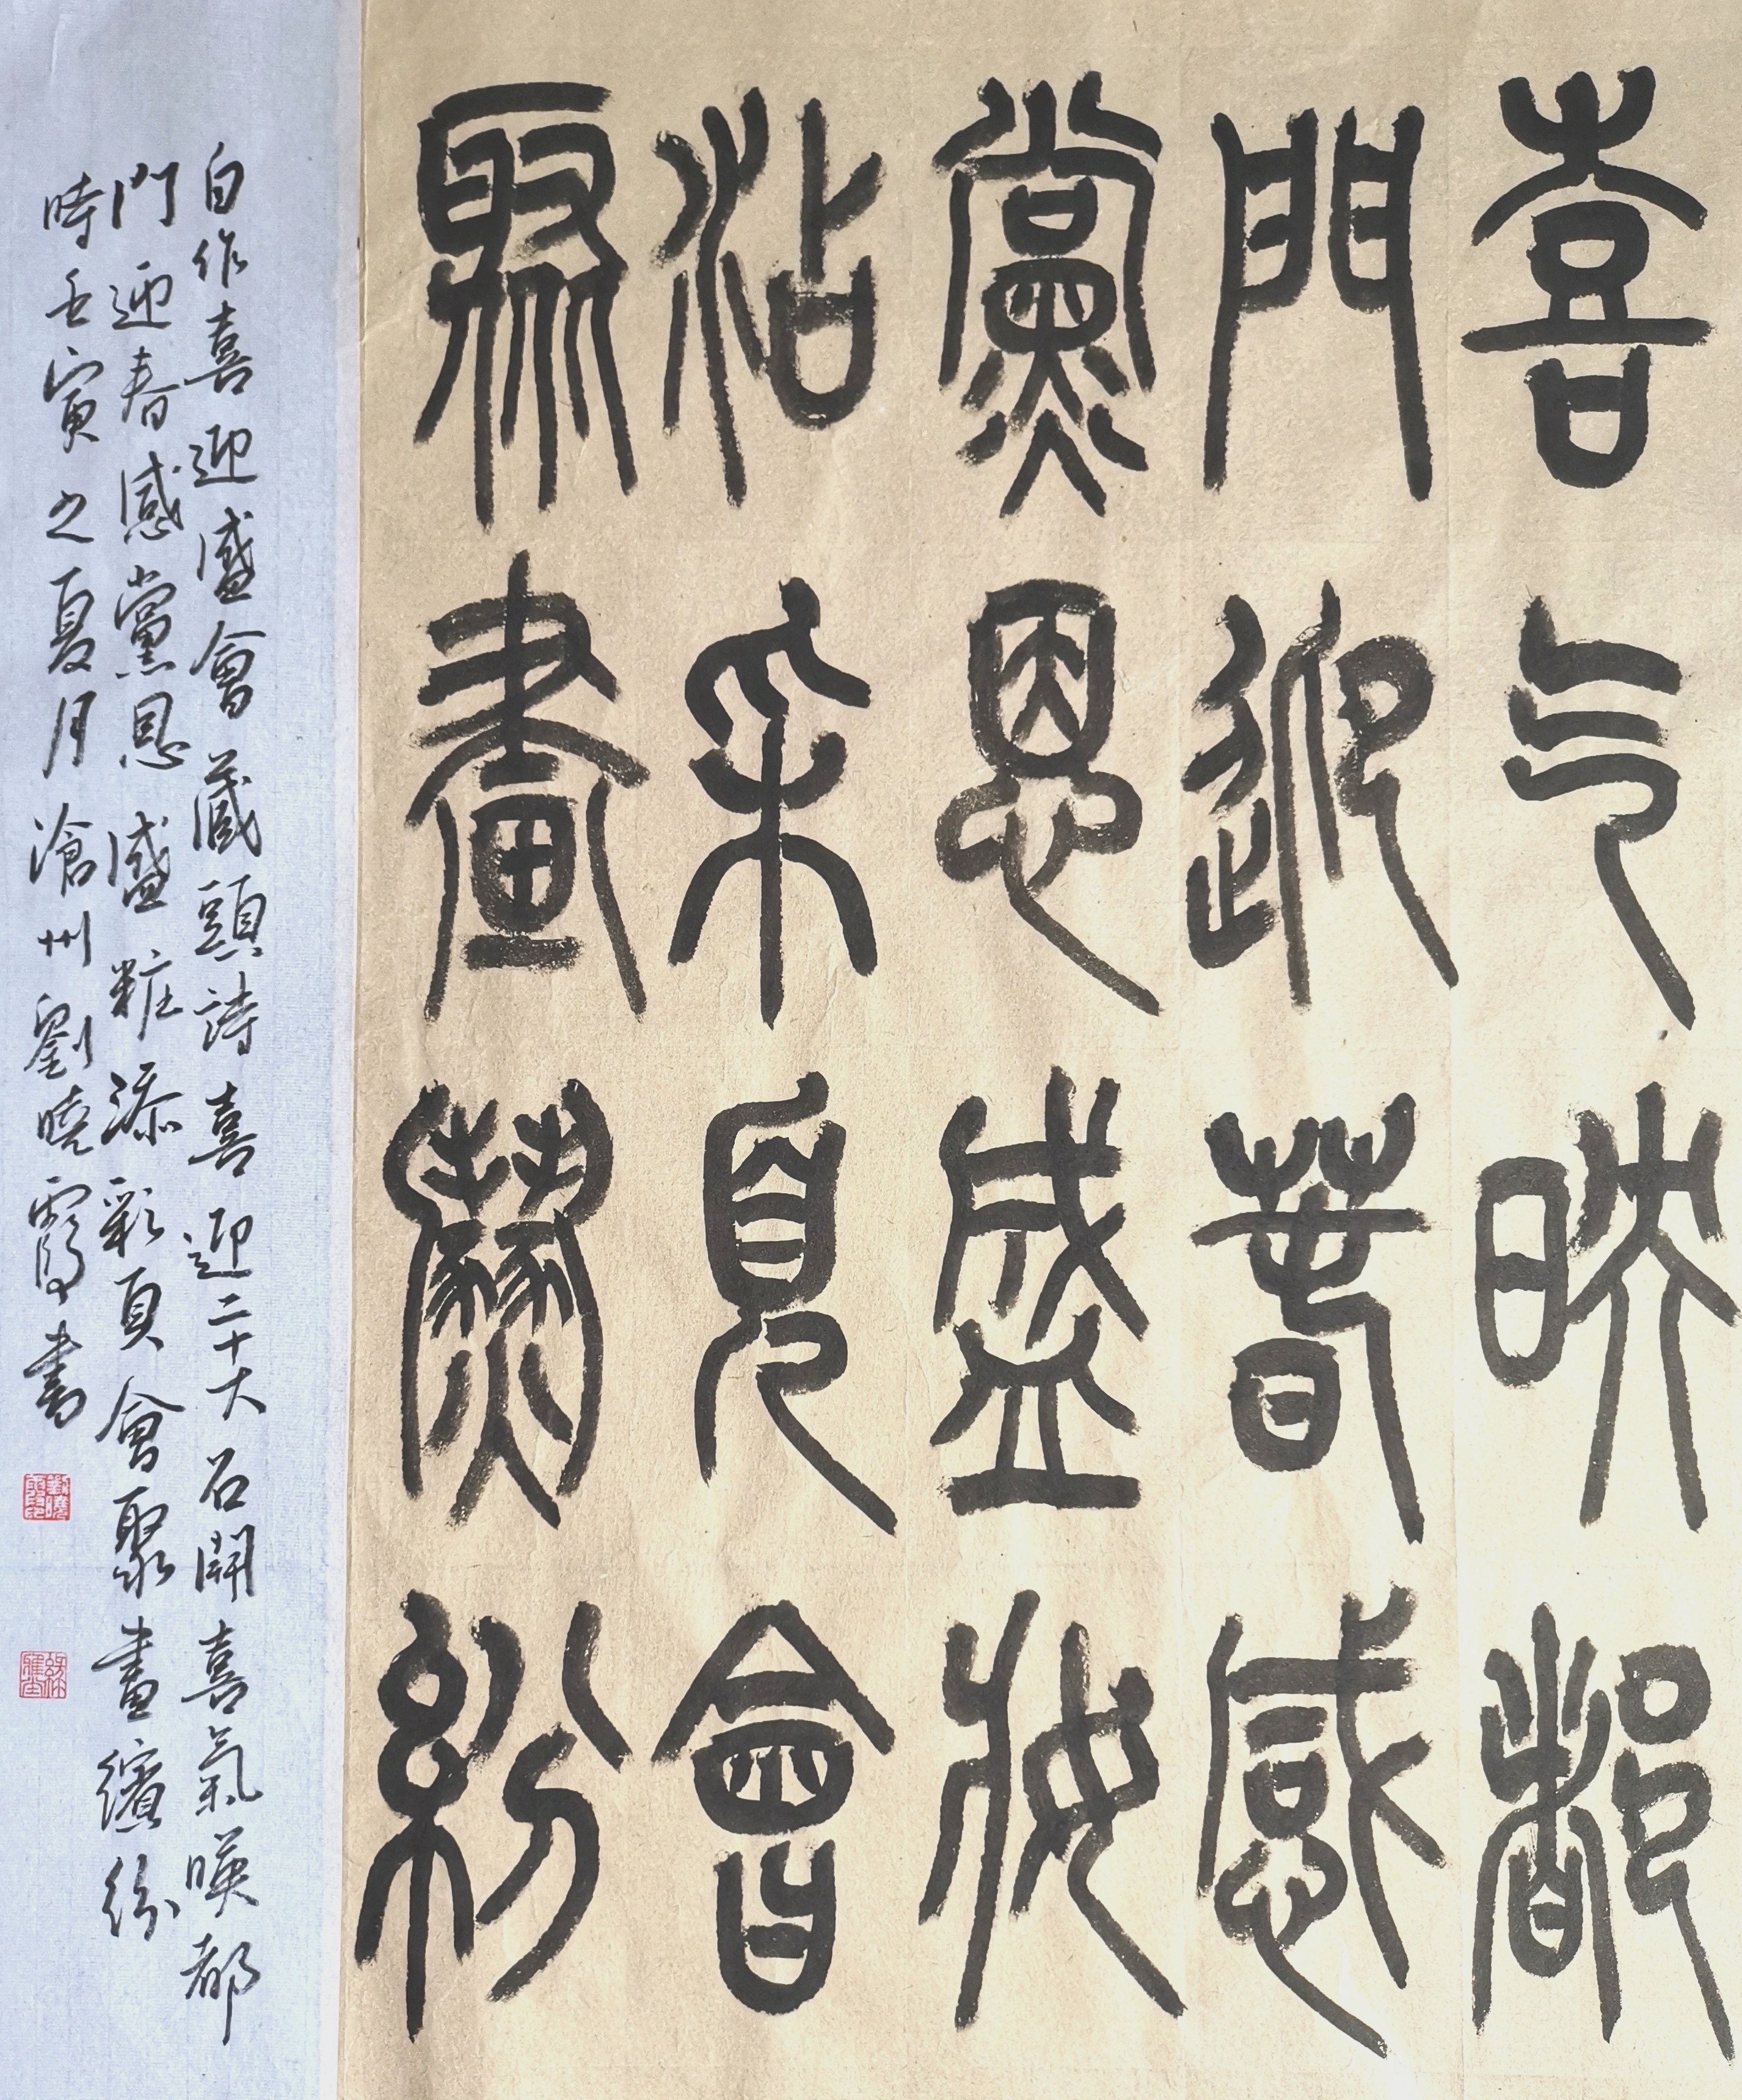 喜气映都
門迎春感
黨恩盛妝
沾采見會
聚畫繽紛
自作喜迎盛會藏頭詩喜迎二十大召開喜氣暎都
門迎春感黨恩盛粧添彩頁會聚畫繽紛
時壬寅之夏月滄州劉曉霞書